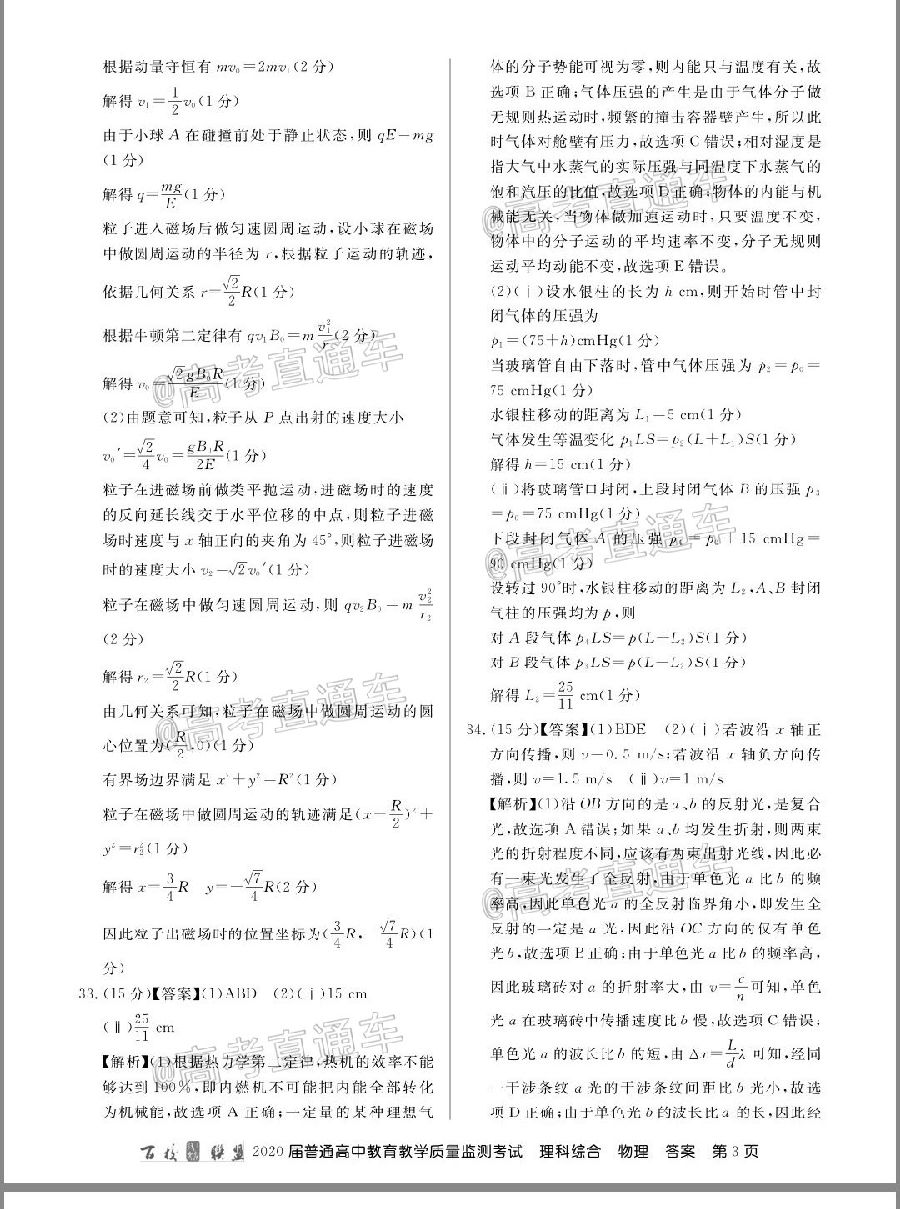 根据动量守恒有 mv₀=2mv₁(2分)
解得 v₁=1/2 v₀(1分)
由于小球 A 在碰撞前处于静止状态,则 qE=mg
(1分)
解得 q=mg/E(1分)
粒子进入磁场后做匀速圆周运动,设小球在磁场
中做圆周运动的半径为 r,根据粒子运动的轨迹,
依据几何关系 r=√2/2 R(1分)
根据牛顿第二定律有 qv₁B₀=m v₁²/r(2分)
解得 v₀=√2gB₀R/E(1分)
(2)由题意可知,粒子从 P 点出射的速度大小
v₀′=√2/4 v₀=gB₀R/2E(1分)
粒子在进磁场前做类平抛运动,进磁场时的速度
的反向延长线交于水平位移的中点,则粒子进磁
场时速度与 x 轴正向的夹角为 45°,则粒子进磁场
时的速度大小 v₂=√2v₀′(1分)
粒子在磁场中做匀速圆周运动,则 qv₂B₀=m v₂²/r₂
(2分)
解得 r₂=√2/2 R(1分)
由几何关系可知,粒子在磁场中做圆周运动的圆
心位置为(R/2,0)(1分)
有界场边界满足 x²+y²=R²(1分)
粒子在磁场中做圆周运动的轨迹满足(x-R/2)²+
y²=r₂²(1分)
解得 x=3/4 R y=-√7/4 R(2分)
因此粒子出磁场时的位置坐标为(3/4 R, √7/4 R)(1
分)
33.(15分)【答案】(1)ABD (2)(ⅰ)15 cm
(ⅱ)25/11 cm
【解析】(1)根据热力学第二定律,热机的效率不能
够达到100%,即内燃机不可能把内能全部转化
为机械能,故选项 A 正确;一定量的某种理想气
体的分子势能可视为零,则内能只与温度有关,故
选项 B 正确;气体压强的产生是由于气体分子做
无规则热运动时,频繁的撞击容器壁产生,所以此
时气体对舱壁有压力,故选项 C 错误;相对湿度是
指大气中水蒸气的实际压强与同温度下水蒸气的
饱和汽压的比值,故选项 D 正确;物体的内能与机
械能无关,当物体做加速运动时,只要温度不变,
物体中的分子运动的平均速率不变,分子无规则
运动平均动能不变,故选项 E 错误。
(2)(ⅰ)设水银柱的长为 h cm,则开始时管中封
闭气体的压强为
p₁=(75+h)cmHg(1分)
当玻璃管自由下落时,管中气体压强为 p₂=p₀=
75 cmHg(1分)
水银柱移动的距离为 L₁=5 cm(1分)
气体发生等温变化 p₁LS=p₂(L+L₁)S(1分)
解得 h=15 cm(1分)
(ⅱ)将玻璃管口封闭,上段封闭气体 B 的压强 p₃
=p₀=75 cmHg(1分)
下段封闭气体 A 的压强 p₄=p₀+15 cmHg=
90 cmHg(1分)
设转过 90°时,水银柱移动的距离为 L₂,A、B 封闭
气柱的压强均为 p,则
对 A 段气体 p₄LS=p(L+L₂)S(1分)
对 B 段气体 p₃LS=p(L-L₂)S(1分)
解得 L₂=25/11 cm(1分)
34.(15分)【答案】(1)BDE (2)(ⅰ)若波沿 x 轴正
方向传播,则 v=0.5 m/s;若波沿 x 轴负方向传
播,则 v=1.5 m/s (ⅱ)v=1 m/s
【解析】(1)沿 OB 方向的是 a、b 的反射光,是复合
光,故选项 A 错误;如果 a、b 均发生折射,则两束
光的折射程度不同,应该有两束出射光线,因此必
有一束光发生了全反射,由于单色光 a 比 b 的频
率高,因此单色光 a 的全反射临界角小,即发生全
反射的一定是 a 光,因此沿 OC 方向的仅有单色
光 b,故选项 B 正确;由于单色光 a 比 b 的频率高,
因此玻璃砖对 a 的折射率大,由 v=c/n可知,单色
光 a 在玻璃砖中传播速度比 b 慢,故选项 C 错误;
单色光 a 的波长比 b 的短,由 Δx=L/d λ 可知,经同
一干涉条纹 a 光的干涉条纹间距比 b 光小,故选
项 D 正确;由于单色光 b 的波长比 a 的长,因此经
百校 联盟 2020 届普通高中教育教学质量监测考试 理科综合 物理 答案 第 3 页
@高考直通车
@高考直通车
@高考直通车
@高考直通车
@高考直通车
@高考直通车
@高考直通车